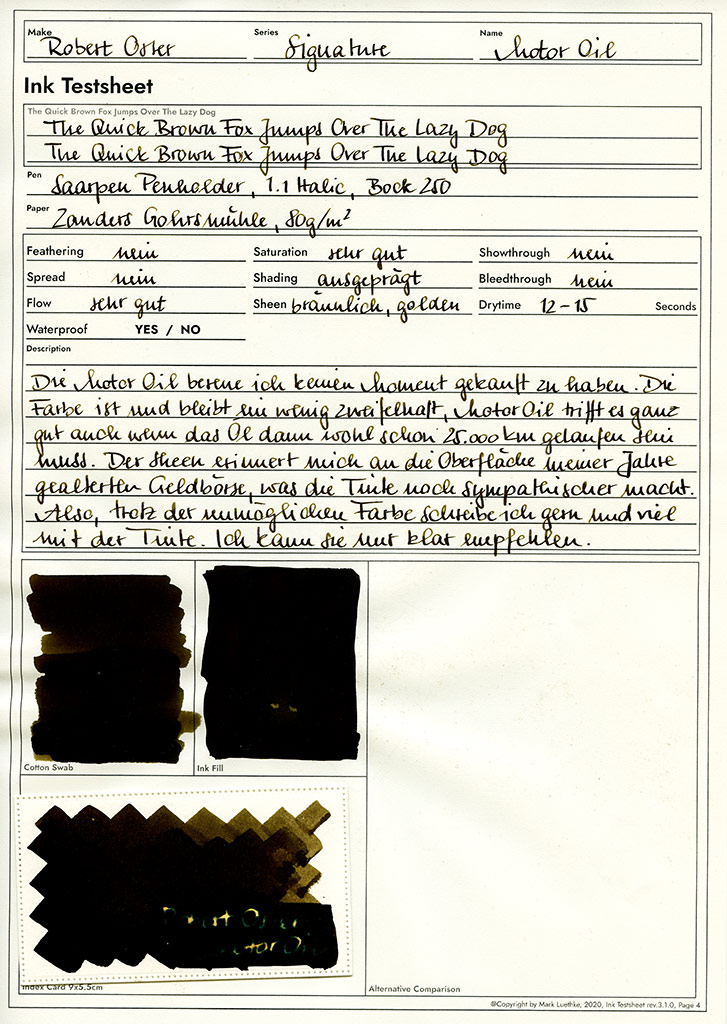 Make Robert Oster Series Signature Name Motor Oil
Ink Testsheet
The Quick Brown Fox Jumps Over The Lazy Dog
The Quick Brown Fox Jumps Over The Lazy Dog
The Quick Brown Fox Jumps Over The Lazy Dog
Pen Saarpen Penholder, 1.1 Italic, Bock 250
Paper Zanders Gohrsmühle, 80g/m²
Feathering nein Saturation sehr gut Showthrough nein
Spread nein Shading ausgeprägt Bleedthrough nein
Flow sehr gut Sheen bräunlich, golden Drytime 12-15 Seconds
Waterproof YES / NO
Description
Die Motor Oil bereue ich keinen Moment gekauft zu haben. Die
Farbe ist und bleibt ein wenig zweifelhaft, Motor Oil trifft es ganz
gut auch wenn das Öl dann wohl schon 25.000 km gelaufen sein
muss. Der Sheen erinnert mich an die Oberfläche meiner Jahre
gealterten Geldbörse, was die Tinte noch sympathischer macht.
Also, trotz der unmöglichen Farbe schreibe ich gern und viel
mit der Tinte. Ich kann sie nur klar empfehlen.
Cotton Swab Ink Fill
Robert Oster
Motor Oil
Index Card 9x5.5cm Alternative Comparison
©Copyright by Mark Luethke, 2020, Ink Testsheet rev.3.1.0, Page 4